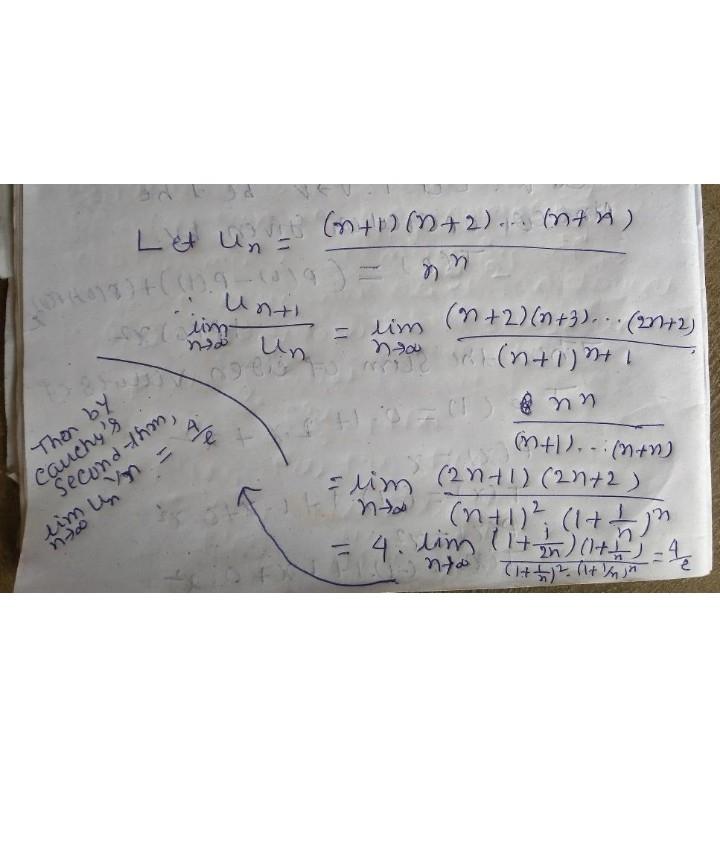 Let uₙ = (n+1)(n+2)...(n+n) / nⁿ
∴ lim n→∞ uₙ₊₁ / uₙ = lim n→∞ (n+2)(n+3)...(2n+2) / (n+1)ⁿ⁺¹
nⁿ / (n+1)...(n+n)
= lim n→∞ (2n+1)(2n+2) / (n+1)² (1+1/n)ⁿ
= 4. lim n→∞ (1+1/2n)(1+1/n) / (1+1/n)². (1+1/n)ⁿ = 4/e
Then by
Cauchy's
second thm,
lim n→∞ uₙ^1/n = 4/e